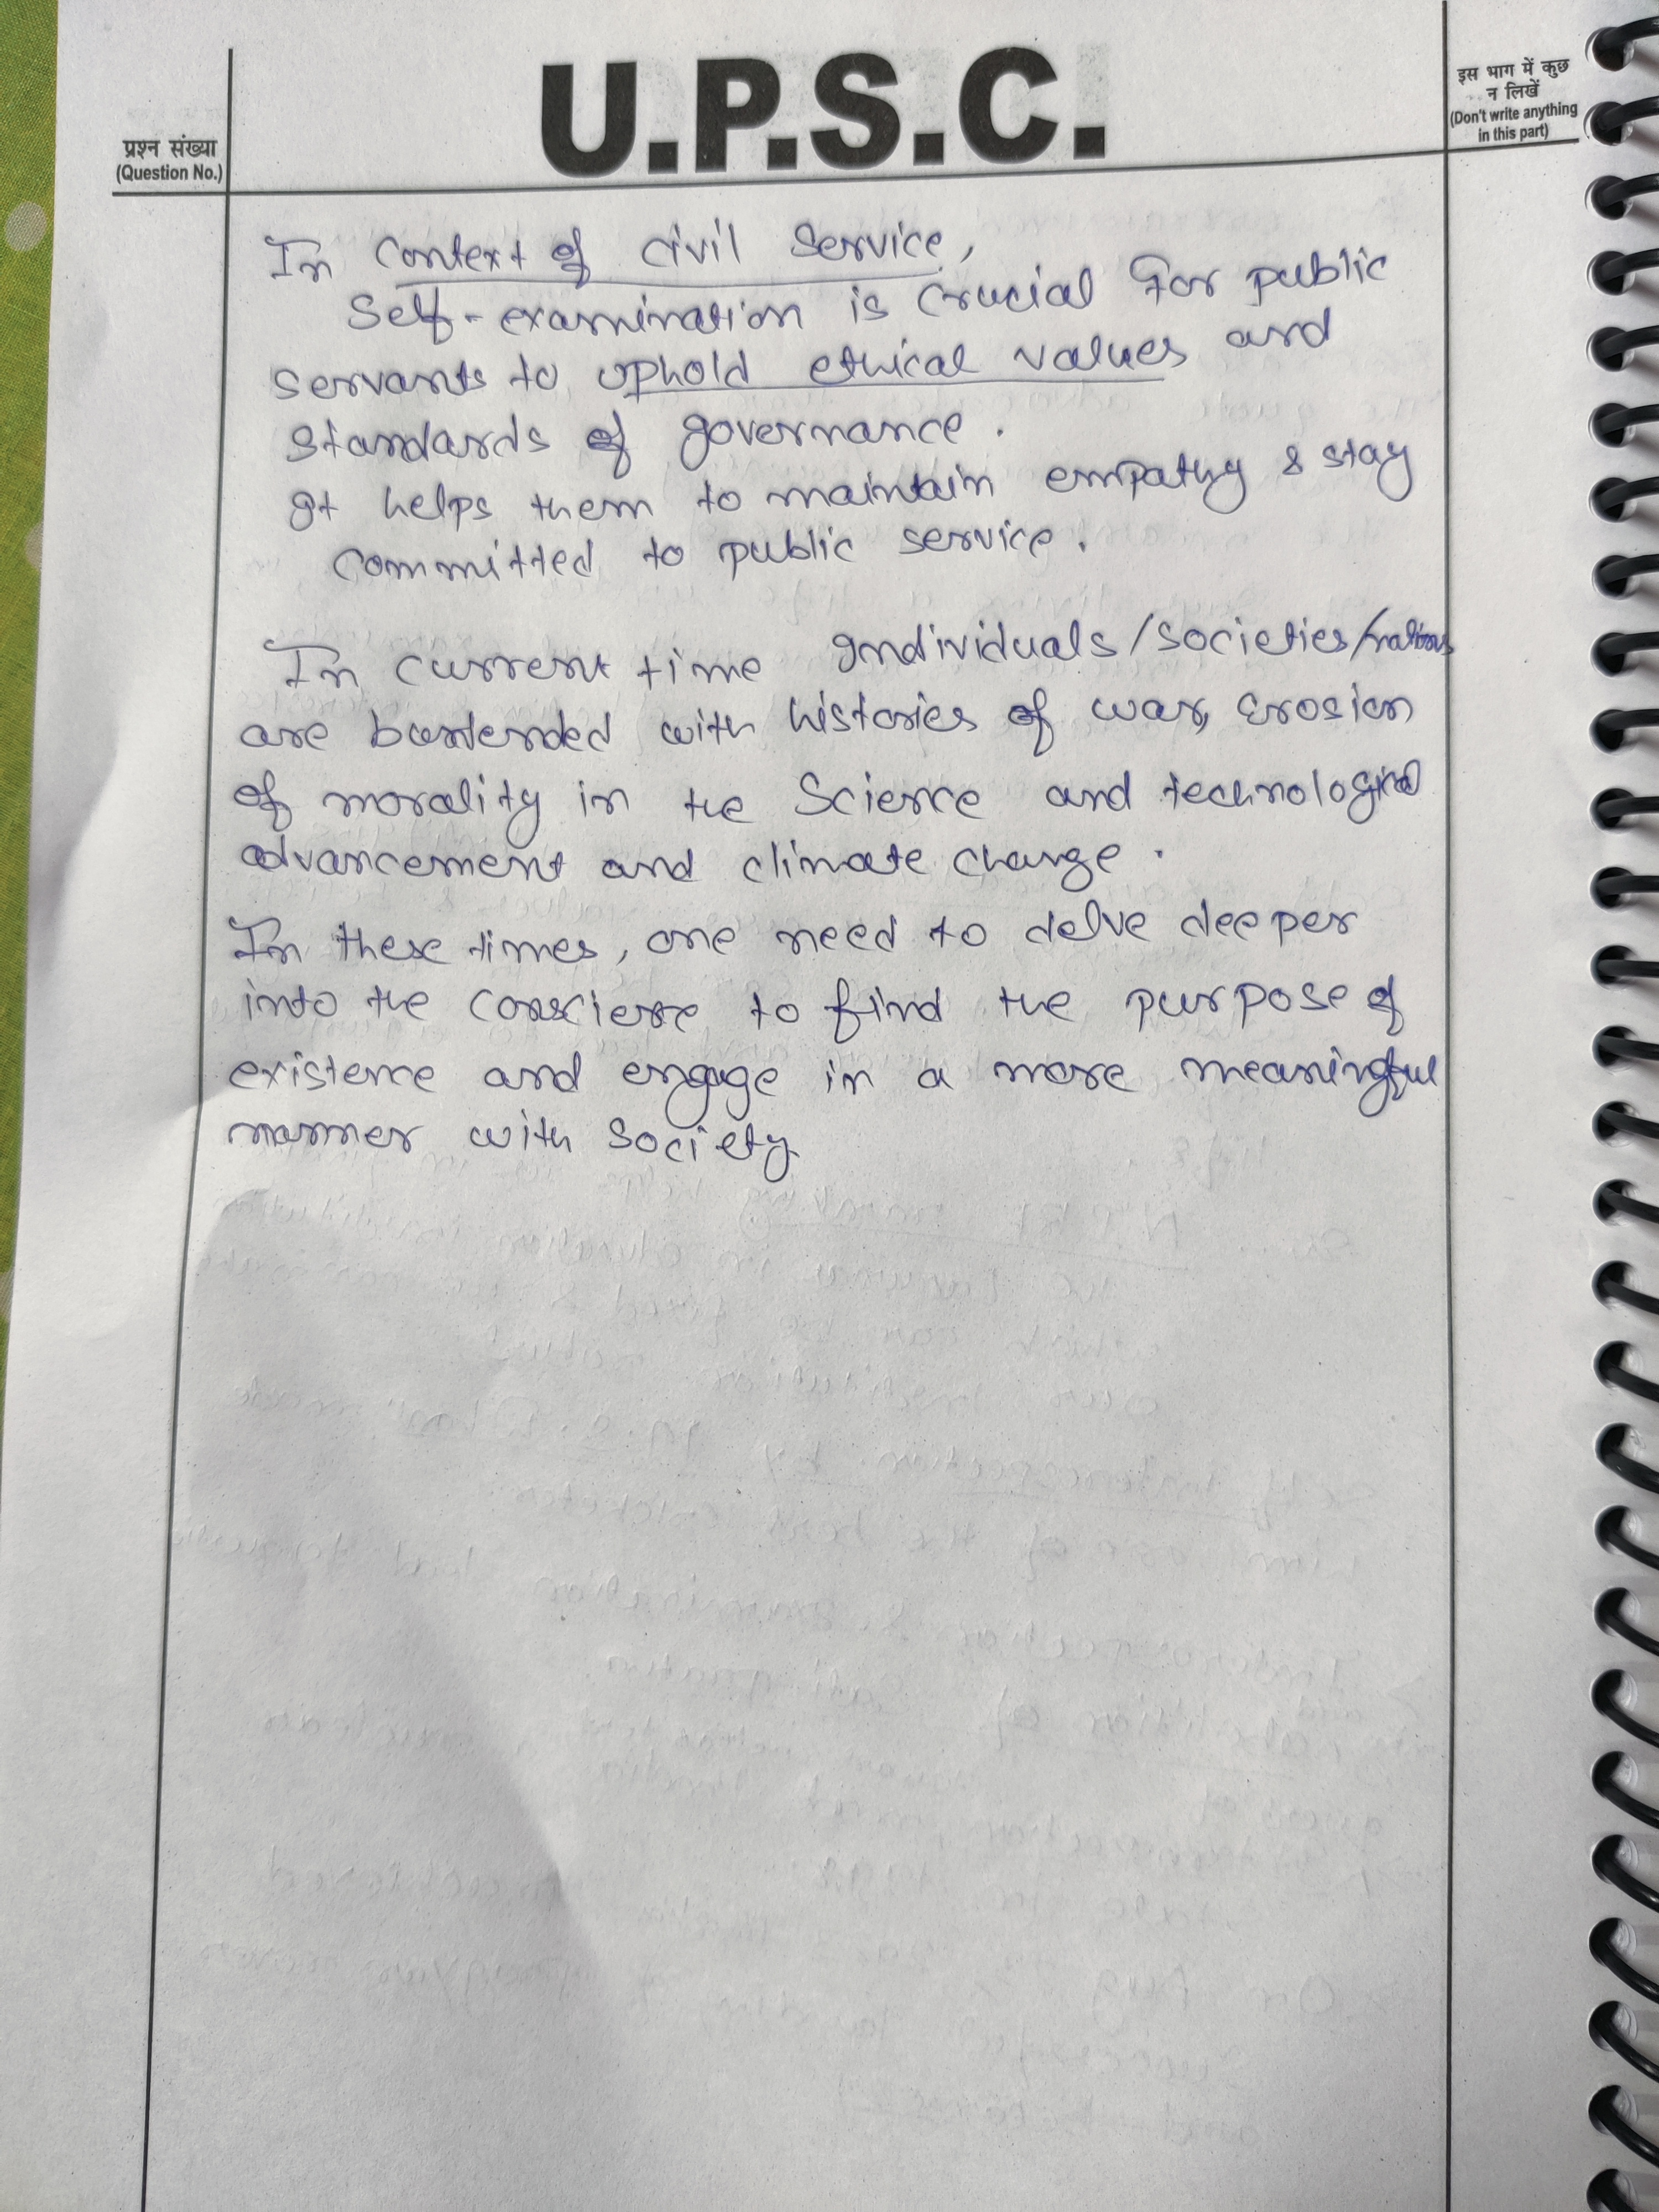 U.P.S.C.
प्रश्न संख्या
(Question No.)
इस भाग में कुछ
न लिखें
(Don't write anything
in this part)
In context of civil service,
Self-examination is crucial for public
servants to uphold ethical values and
standards of governance.
It helps them to maintain empathy & stay
committed to public service.
In current time Individuals/societies/nations
are burdended with histories of war, erosion
of morality in the Science and technological
advancement and climate change.
In these times, one need to delve deeper
into the conscience to find the purpose of
existence and engage in a more meaningful
manner with society.